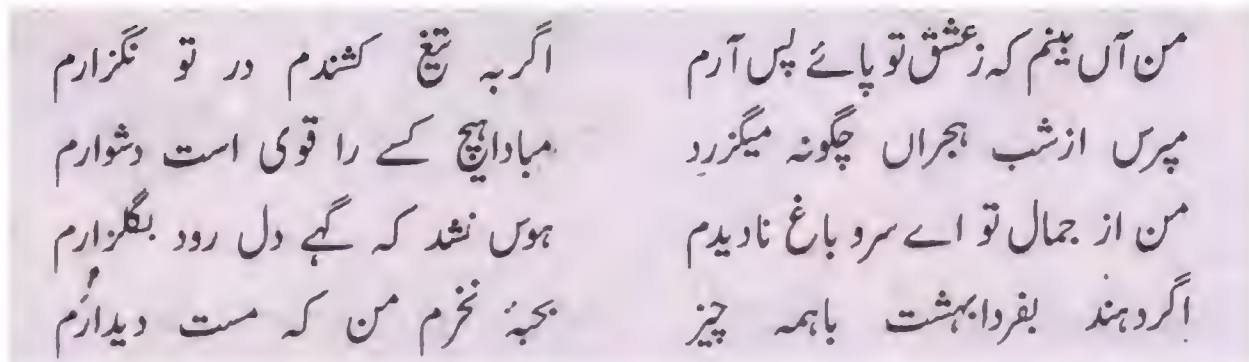 من آں بینم کہ زعشق تو پائے پس آرم اگر بہ تیغ کشندم در تو نگزارم
مپرس ازشب ہجراں چگونہ میگزرد مباداہیچ کسے را قوی است دشوارم
من از جمال تو اے سرو باغ نادیدم ہوس نشد کہ گہے دل رود بگلزارم
اگردہند بفردابہشت باہمہ چیز بحبہٴ نخرم من کہ مست دیدارُم